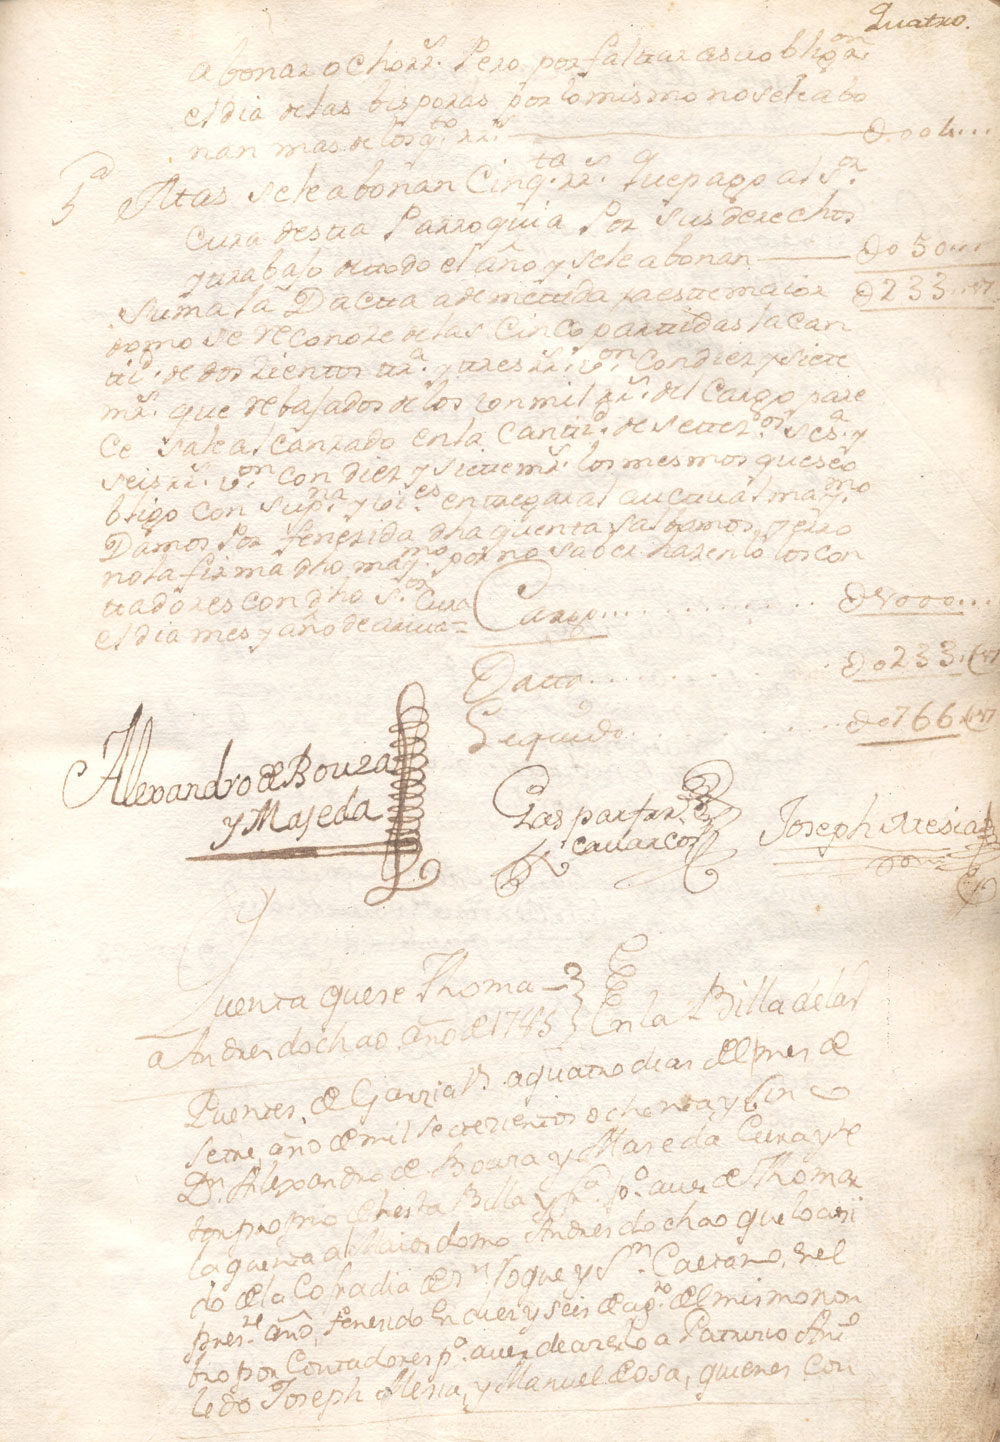 Quatro.
abonar ocho rr.s Pero por faltar a su obligon
el dia de las bisporas por lo mismo no se le abo
nan mas de los qto rr.s — d 004...
5a Ittas se le abonan Cinqta rr.s que pago al Sor
Cura desta Parroquia Por sus derechos
y trabajo de todo el año y se le abonan — do 50...
Suma la Dacta ademetida
d 233..17
como se reconoze de las Cinco partidas la can
tid de dos zientos tra y tres rr.s von con diez y siete
mrs. que debajados de los mil rr.s del Cargo pare
ce sale alcanzado en la Cantid de setezos sesa y
seis rr.s von con diez y siete mrs. los mesmos que se o
bligo con supna y vies entregar al auctual maymo
Damos Por fenezida dha quenta salbamos yerro
no la firma dho maymo por no saber hazenlo los con
tadores con dho Sor Cura
el dia mes y año de arriva=
Cargo........... d 1000...
Datta........... do 233..17
Liquido........... do 766..17
Alexandro de Bouza
y Maseda
Gaspar frz
cavarcos
Joseph Alesia
Quenta que se Thoma
a Andres dochao año de 1785
En la Billa de las
Puentes de Garzia Rs a quatro dias del mes de
Setre año de mil setezientos ochenta y Sin
Dn Alexandro de Bouza y Maseda Cura y Te
propio de esta Billa y po aver de Thomar
la quenta al Maiordomo Andres dochao que lo a si
do de la Cofradia de Sn Roque y Sn Caetano, en el
preste año, fenezido En diez y seis de agto del mismo nom
bro por Contadores po aver de azerlo a Paturzio
ledo Joseph Alesia, y Manuel Cosa, quienes con